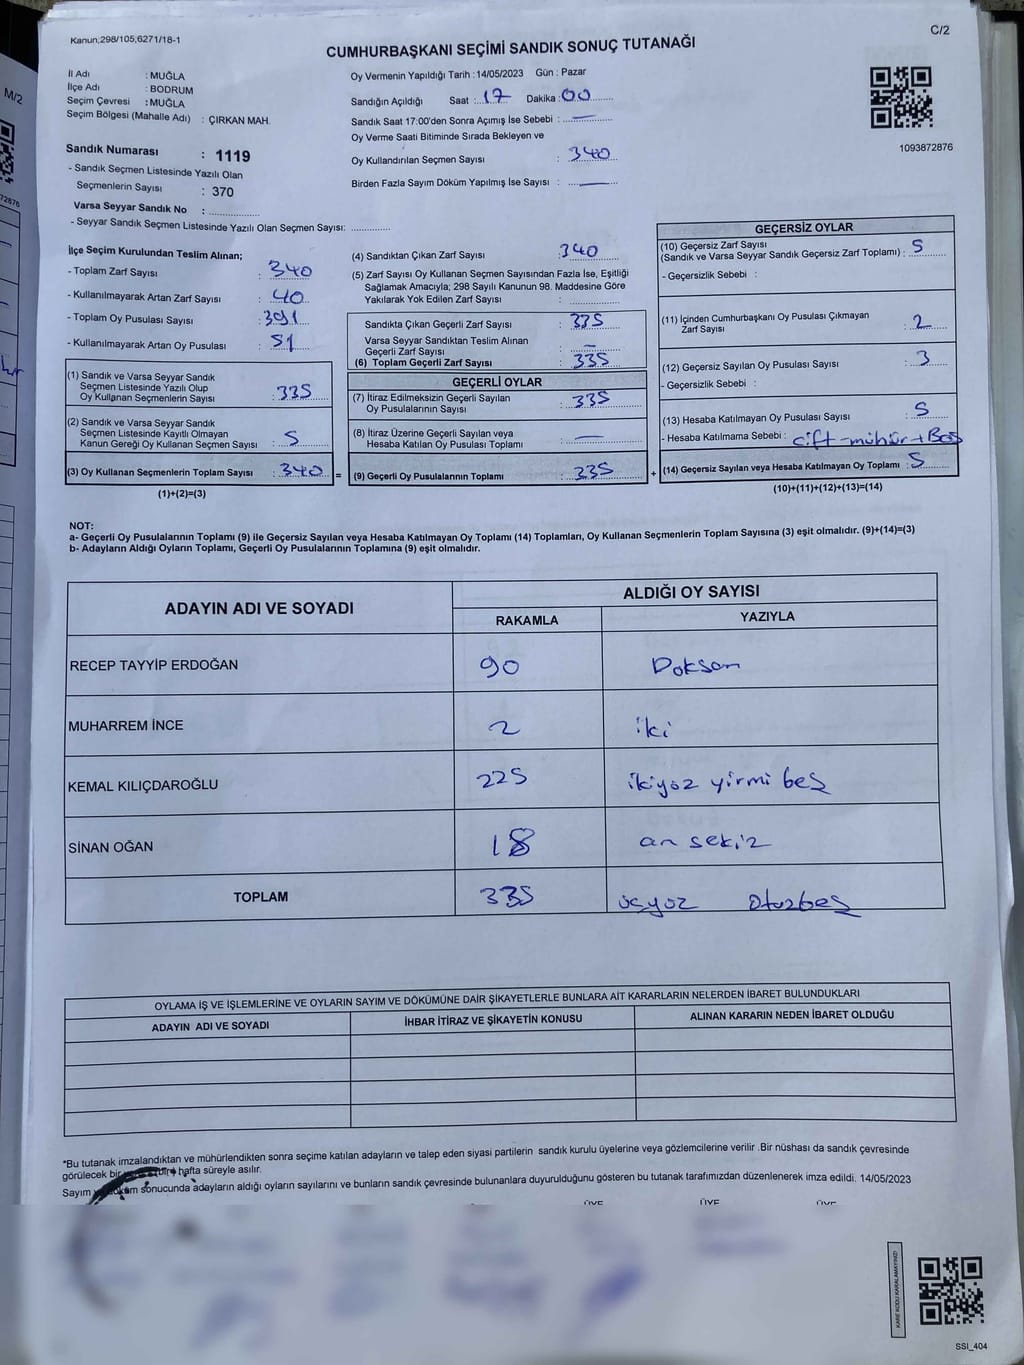 Kanun,298/105,6271/18-1
C/2
CUMHURBAŞKANI SEÇİMİ SANDIK SONUÇ TUTANAĞI
İl Adı : MUĞLA
İlçe Adı : BODRUM
Seçim Çevresi : MUĞLA
Seçim Bölgesi (Mahalle Adı) : ÇIRKAN MAH.
Sandık Numarası : 1119
- Sandık Seçmen Listesinde Yazılı Olan
Seçmenlerin Sayısı : 370
Varsa Seyyar Sandık No :
- Seyyar Sandık Seçmen Listesinde Yazılı Olan Seçmen Sayısı:
Oy Vermenin Yapıldığı Tarih : 14/05/2023 Gün : Pazar
Sandığın Açıldığı Saat : 17 Dakika : 00
Sandık Saat 17:00'den Sonra Açımış İse Sebebi : —
Oy Verme Saati Bitiminde Sırada Bekleyen ve
Oy Kullandırılan Seçmen Sayısı : 340
Birden Fazla Sayım Döküm Yapılmış İse Sayısı : —
1093872876
M/2
72876
İlçe Seçim Kurulundan Teslim Alınan;
- Toplam Zarf Sayısı : 340
- Kullanılmayarak Artan Zarf Sayısı : 40
- Toplam Oy Pusulası Sayısı : 391
- Kullanılmayarak Artan Oy Pusulası : 51
(1) Sandık ve Varsa Seyyar Sandık
Seçmen Listesinde Yazılı Olup
Oy Kullanan Seçmenlerin Sayısı : 335
(2) Sandık ve Varsa Seyyar Sandık
Seçmen Listesinde Kayıtlı Olmayan
Kanun Gereği Oy Kullanan Seçmen Sayısı : 5
(3) Oy Kullanan Seçmenlerin Toplam Sayısı : 340 =
(1)+(2)=(3)
(4) Sandıktan Çıkan Zarf Sayısı : 340
(5) Zarf Sayısı Oy Kullanan Seçmen Sayısından Fazla İse, Eşitliği
Sağlamak Amacıyla; 298 Sayılı Kanunun 98. Maddesine Göre
Yakılarak Yok Edilen Zarf Sayısı :
Sandıkta Çıkan Geçerli Zarf Sayısı : 335
Varsa Seyyar Sandıktan Teslim Alınan
Geçerli Zarf Sayısı : —
(6) Toplam Geçerli Zarf Sayısı : 335
GEÇERLİ OYLAR
(7) İtiraz Edilmeksizin Geçerli Sayılan
Oy Pusulalarının Sayısı : 335
(8) İtiraz Üzerine Geçerli Sayılan veya
Hesaba Katılan Oy Pusulası Toplamı : —
(9) Geçerli Oy Pusulalarının Toplamı : 335 +
GEÇERSİZ OYLAR
(10) Geçersiz Zarf Sayısı
(Sandık ve Varsa Seyyar Sandık Geçersiz Zarf Toplamı) : 5
- Geçersizlik Sebebi :
(11) İçinden Cumhurbaşkanı Oy Pusulası Çıkmayan
Zarf Sayısı : 2
(12) Geçersiz Sayılan Oy Pusulası Sayısı : 3
- Geçersizlik Sebebi :
(13) Hesaba Katılmayan Oy Pusulası Sayısı : 5
- Hesaba Katılmama Sebebi : çift-mühür+Boş
(14) Geçersiz Sayılan veya Hesaba Katılmayan Oy Toplamı : 5
(10)+(11)+(12)+(13)=(14)
NOT:
a- Geçerli Oy Pusulalarının Toplamı (9) ile Geçersiz Sayılan veya Hesaba Katılmayan Oy Toplamı (14) Toplamları, Oy Kullanan Seçmenlerin Toplam Sayısına (3) eşit olmalıdır. (9)+(14)=(3)
b- Adayların Aldığı Oyların Toplamı, Geçerli Oy Pusulalarının Toplamına (9) eşit olmalıdır.
ADAYIN ADI VE SOYADI ALDIĞI OY SAYISI
RAKAMLA YAZIYLA
RECEP TAYYİP ERDOĞAN 90 Doksan
MUHARREM İNCE 2 iki
KEMAL KILIÇDAROĞLU 225 ikiyüz yirmi beş
SİNAN OĞAN 18 on sekiz
TOPLAM 335 üçyüz otuzbeş
OYLAMA İŞ VE İŞLEMLERİNE VE OYLARIN SAYIM VE DÖKÜMÜNE DAİR ŞİKAYETLERLE BUNLARA AİT KARARLARIN NELERDEN İBARET BULUNDUKLARI
ADAYIN ADI VE SOYADI İHBAR İTİRAZ VE ŞİKAYETİN KONUSU ALINAN KARARIN NEDEN İBARET OLDUĞU
*Bu tutanak imzalandıktan ve mühürlendikten sonra seçime katılan adayların ve talep eden siyasi partilerin sandık kurulu üyelerine veya gözlemcilerine verilir .Bir nüshası da sandık çevresinde
görülecek bir hafta süreyle asılır.
Sayım sonucunda adayların aldığı oyların sayılarını ve bunların sandık çevresinde bulunanlara duyurulduğunu gösteren bu tutanak tarafımızdan düzenlenerek imza edildi. 14/05/2023
ÜYE ÜYE ÜYE
KARE KODU KARALAMAYINIZ!
SSI_404